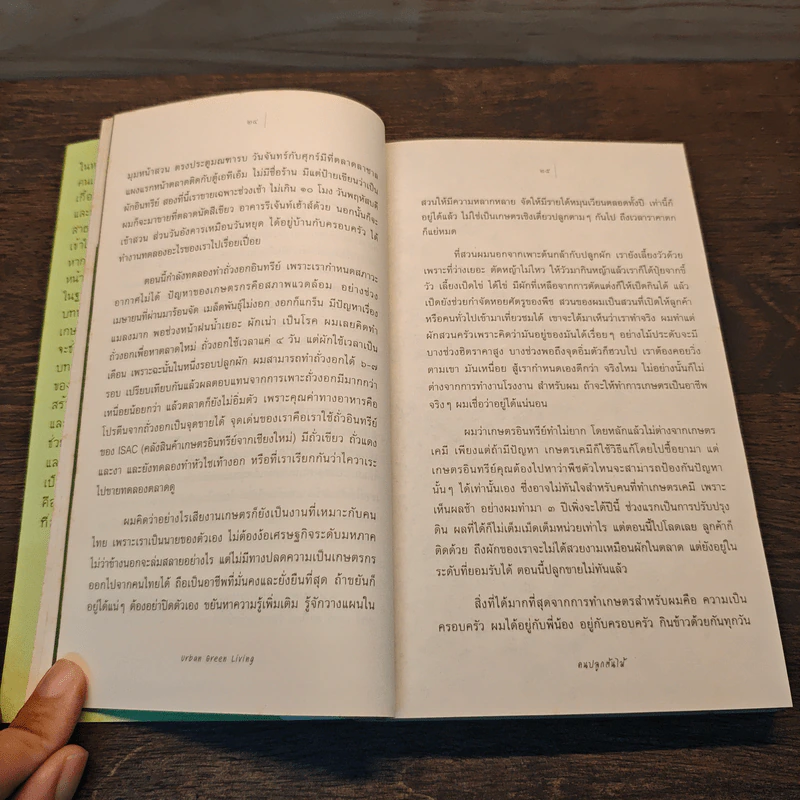 ๒๔
มุมหน้าสวน ตรงประตูมณฑารบ วันจันทร์กับศุกร์มีที่ตลาดลาซาล
แผงแรกหน้าตลาดติดกับตู้เอทีเอ็ม ไม่มีชื่อร้าน มีแต่ป้ายเขียนว่าเป็น
ผักอินทรีย์ สองที่นี้เราขายเฉพาะช่วงเช้า ไม่เกิน ๑๐ โมง วันพฤหัสบดี
ผมก็จะมาขายที่ตลาดนัดสีเขียว อาคารรีเจ้นท์เฮ้าส์ด้วย นอกนั้นก็จะ
เข้าสวน ส่วนวันอังคารเหมือนวันหยุด ได้อยู่บ้านกับครอบครัว ได้
ทำงานทดลองอะไรของเราไปเรื่อยเปื่อย
ตอนนี้กำลังทดลองทำถั่วงอกอินทรีย์ เพราะเรากำหนดสภาวะ
อากาศไม่ได้ ปัญหาของเกษตรกรคือสภาพแวดล้อม อย่างช่วง
เมษายนที่ผ่านมาร้อนจัด เมล็ดพันธุ์ไม่งอก งอกก็แกร็น มีปัญหาเรื่อง
แมลงมาก พอช่วงหน้าฝนน้ำเยอะ ผักเน่า เป็นโรค ผมเลยคิดทำ
ถั่วงอกเพื่อหาตลาดใหม่ ถั่วงอกใช้เวลาแค่ ๔ วัน แต่ผักใช้เวลาเป็น
เดือน เพราะฉะนั้นในหนึ่งรอบปลูกผัก ผมสามารถทำถั่วงอกได้ ๖-๗
รอบ เปรียบเทียบกันแล้วผลตอบแทนจากการเพาะถั่วงอกมีมากกว่า
เหนื่อยน้อยกว่า แล้วตลาดก็ยังไม่อิ่มตัว เพราะคุณค่าทางอาหารคือ
โปรตีนจากถั่วงอกเป็นจุดขายได้ จุดเด่นของเราคือเราใช้ถั่วอินทรีย์
ของ ISAC (คลังสินค้าเกษตรอินทรีย์จากเชียงใหม่) มีถั่วเขียว ถั่วแดง
และงา และยังทดลองทำหัวไชเท้างอก หรือที่เราเรียกกันว่าไควาเระ
ไปขายทดลองตลาดดู
ผมคิดว่าอย่างไรเสียงานเกษตรก็ยังเป็นงานที่เหมาะกับคน
ไทย เพราะเราเป็นนายของตัวเอง ไม่ต้องง้อเศรษฐกิจระดับมหภาค
ไม่ว่าข้างนอกจะล่มสลายอย่างไร แต่ไม่มีทางปลดความเป็นเกษตรกร
ออกไปจากคนไทยได้ ถือเป็นอาชีพที่มั่นคงและยั่งยืนที่สุด ถ้าขยันก็
อยู่ได้แน่ๆ ต้องอย่าปิดตัวเอง ขยันหาความรู้เพิ่มเติม รู้จักวางแผนใน
Urban Green Living
๒๕
สวนให้มีความหลากหลาย จัดให้มีรายได้หมุนเวียนตลอดทั้งปี เท่านี้ก็
อยู่ได้แล้ว ไม่ใช่เป็นเกษตรเชิงเดี่ยวปลูกตามๆ กันไป ถึงเวลาราคาตก
ก็แย่หมด
ที่สวนผมนอกจากเพาะต้นกล้ากับปลูกผัก เรายังเลี้ยงวัวด้วย
เพราะที่ว่างเยอะ ตัดหญ้าไม่ไหว ให้วัวมากินหญ้าแล้วเราก็ได้ปุ๋ยจากขี้
วัว เลี้ยงเป็ดไข่ ได้ไข่ มีผักที่เหลือจากการตัดแต่งก็ให้เป็ดกินได้ แล้ว
เป็ดยังช่วยกำจัดหอยศัตรูของพืช สวนของผมเป็นสวนที่เปิดให้ลูกค้า
หรือคนทั่วไปเข้ามาเที่ยวชมได้ เขาจะได้มาเห็นว่าเราทำจริง ผมทำแต่
ผักสวนครัวเพราะคิดว่ามันอยู่ของมันได้เรื่อยๆ อย่างไม้ประดับจะมี
บางช่วงฮิตราคาสูง บางช่วงพอถึงจุดอิ่มตัวก็ฮวบไป เราต้องคอยวิ่ง
ตามเขา มันเหนื่อย สู้เรากำหนดเองดีกว่า จริงไหม ไม่อย่างนั้นก็ไม่
ต่างจากการทำงานโรงงาน สำหรับผม ถ้าจะให้ทำการเกษตรเป็นอาชีพ
จริงๆ ผมเชื่อว่าอยู่ได้แน่นอน
ผมว่าเกษตรอินทรีย์ทำไม่ยาก โดยหลักแล้วไม่ต่างจากเกษตร
เคมี เพียงแต่ถ้ามีปัญหา เกษตรเคมีก็ใช้วิธีแก้โดยไปซื้อยามา แต่
เกษตรอินทรีย์คุณต้องไปหาว่าพืชตัวไหนจะสามารถป้องกันปัญหา
นั้นๆ ได้เท่านั้นเอง ซึ่งอาจไม่ทันใจสำหรับคนที่ทำเกษตรเคมี เพราะ
เห็นผลช้า อย่างผมทำมา ๓ ปีเพิ่งจะได้ปีนี้ ช่วงแรกเป็นการปรับปรุง
ดิน ผลที่ได้ก็ไม่เต็มเม็ดเต็มหน่วยเท่าไร แต่ตอนนี้ไปโลดเลย ลูกค้าก็
ติดด้วย ถึงผักของเราจะไม่ได้สวยงามเหมือนผักในตลาด แต่ยังอยู่ใน
ระดับที่ยอมรับได้ ตอนนี้ปลูกขายไม่ทันแล้ว
สิ่งที่ได้มากที่สุดจากการทำเกษตรสำหรับผมคือ ความเป็น
ครอบครัว ผมได้อยู่กับพี่น้อง อยู่กับครอบครัว กินข้าวด้วยกันทุกวัน
คนปลูกต้นไม้